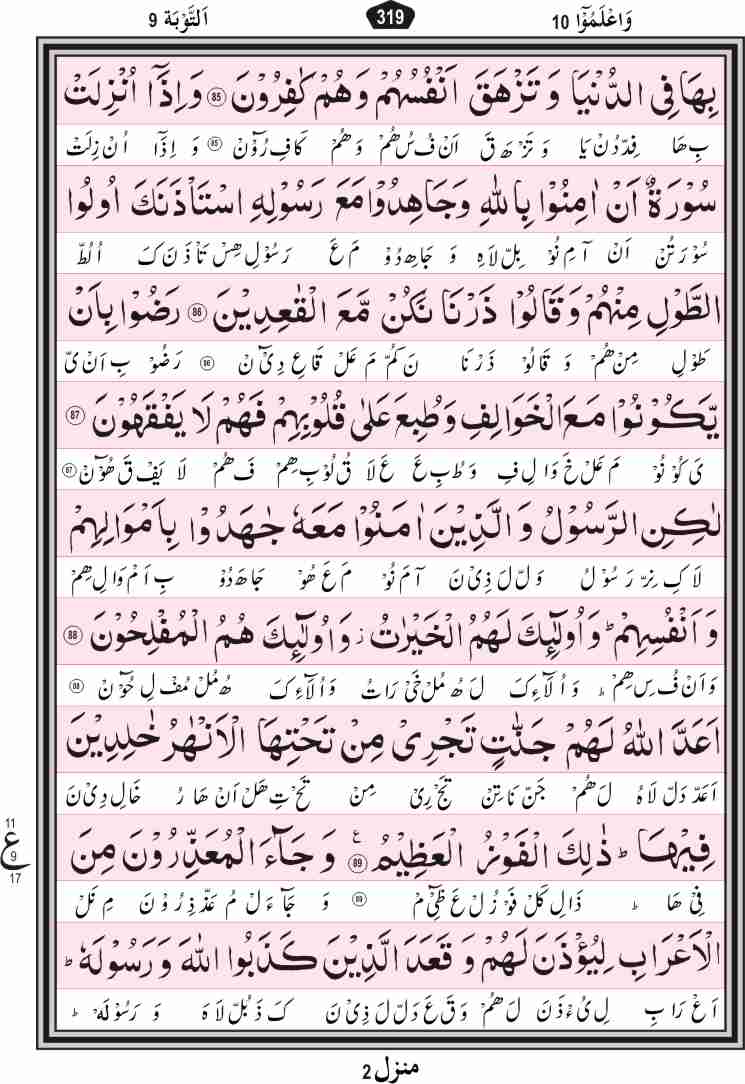 وَاعْلَمُوْٓا 10 319 اَلتَّوْبَة 9
بِهَا فِی الدُّنْیَا وَ تَزْهَقَ اَنْفُسُهُمْ وَهُمْ كٰفِرُوْنَ 85 وَ اِذَاۤ اُنْزِلَتْ
بِ هَا فِدّ دُنْ یَا وَ تَزْ هَ قَ اَنْ فُ سُ هُمْ وَ هُمْ كَافِ رُوْٓنْ 85 وَ اِذَآ اُنْ زِلَتْ
سُوْرَةٌ اَنْ اٰمِنُوْا بِاللّٰهِ وَجَاهِدُوْا مَعَ رَسُوْلِهِ اسْتَاْذَنَكَ اُولُوا
سُوْرَ تُنْ اَنْ آمِ نُوْ بِلّ لَاہِ وَ جَاهِ دُوْ مَ عَ رَسُوْ لِ هِسْ تَاْ ذَ نَ كَ اُلُطّ
الطَّوْلِ مِنْهُمْ وَقَالُوْا ذَرْنَا نَكُنْ مَّعَ الْقٰعِدِیْنَ 86 رَضُوْا بِاَنْ
طَوْلِ مِنْ هُمْ وَ قَا لُوْ ذَرْ نَا نَ كُمّ مَ عَلْ قَاعِ دِیْٓ نْ 86 رَ ضُوْ بِ اَنْ یّ
یَّكُوْنُوْا مَعَ الْخَوَالِفِ وَطُبِعَ عَلٰی قُلُوْبِهِمْ فَهُمْ لَا یَفْقَهُوْنَ 87
یَ كُوْ نُوْ مَ عَلْ خَ وَا لِ فِ وَ طُ بِ عَ عَ لَا قُ لُوْ بِ هِمْ فَ هُمْ لَا یَفْ قَ هُوْٓنْ 87
لٰكِنِ الرَّسُوْلُ وَ الَّذِیْنَ اٰمَنُوْا مَعَهٗ جٰهَدُوْا بِاَمْوَالِهِمْ
لَا كِ نِرّ رَسُوْ لُ وَ لّ لَ ذِیْ نَ آمَ نُوْ مَ عَ هُوْ جَاهَ دُوْ بِ اَمْ وَالِ هِمْ
وَ اَنْفُسِهِمْ ؕ وَ اُولٰٓىِٕكَ لَهُمُ الْخَیْرٰتُ ز وَ اُولٰٓىِٕكَ هُمُ الْمُفْلِحُوْنَ 88
وَ اَنْ فُ سِ هِمْ ؕ وَ اُلَآءِ كَ لَ هُ مُلْ خَیْ رَا تُ وَ اُلَآءِ كَ هُ مُلْ مُفْ لِ حُوْٓ نْ 88
اَعَدَّ اللّٰهُ لَهُمْ جَنّٰتٍ تَجْرِیْ مِنْ تَحْتِهَا الْاَنْهٰرُ خٰلِدِیْنَ
اَعَدّ دَلّ لَاہُ لَ هُمْ جَنّ نَا تِنْ تَجْ رِیْ مِنْ تَحْ تِ هَلْ اَنْ هَا رُ خَالِ دِیْ نَ
فِیْهَا ؕ ذٰلِكَ الْفَوْزُ الْعَظِیْمُ 89 ع وَ جَآءَ الْمُعَذِّرُوْنَ مِنَ
فِیْ هَا ؕ ذَالِ كَلْ فَوْ زُ لْ عَ ظِیْٓ مْ 89 وَ جَآءَ لْ مُ عَذّ ذِرُ وْ نَ مِ نَلْ
11 ع 9 17
الْاَعْرَابِ لِیُؤْذَنَ لَهُمْ وَ قَعَدَ الَّذِیْنَ كَذَبُوا اللّٰهَ وَ رَسُوْلَهٗ ؕ
اَعْ رَا بِ لِ یُءْ ذَ نَ لَ هُمْ وَ قَ عَ دَلّ لَ ذِیْ نَ كَ ذَ بُلّ لَا ہَ وَ رَ سُوْ لَهْ ؕ
منزل 2